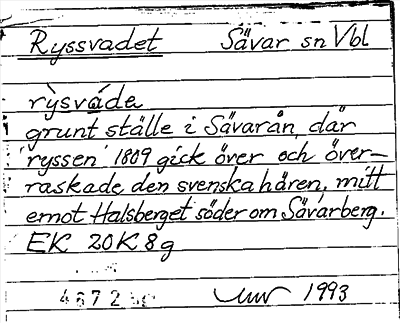 Ryssvadet Sävar sn Vbl
rỳsváde
grunt ställe i Sävarån, där
'ryssen' 1809 gick över och över-
raskade den svenska hären, mitt
emot Halsberget söder om Sävarberg.
EK 20K8g
4672 1993